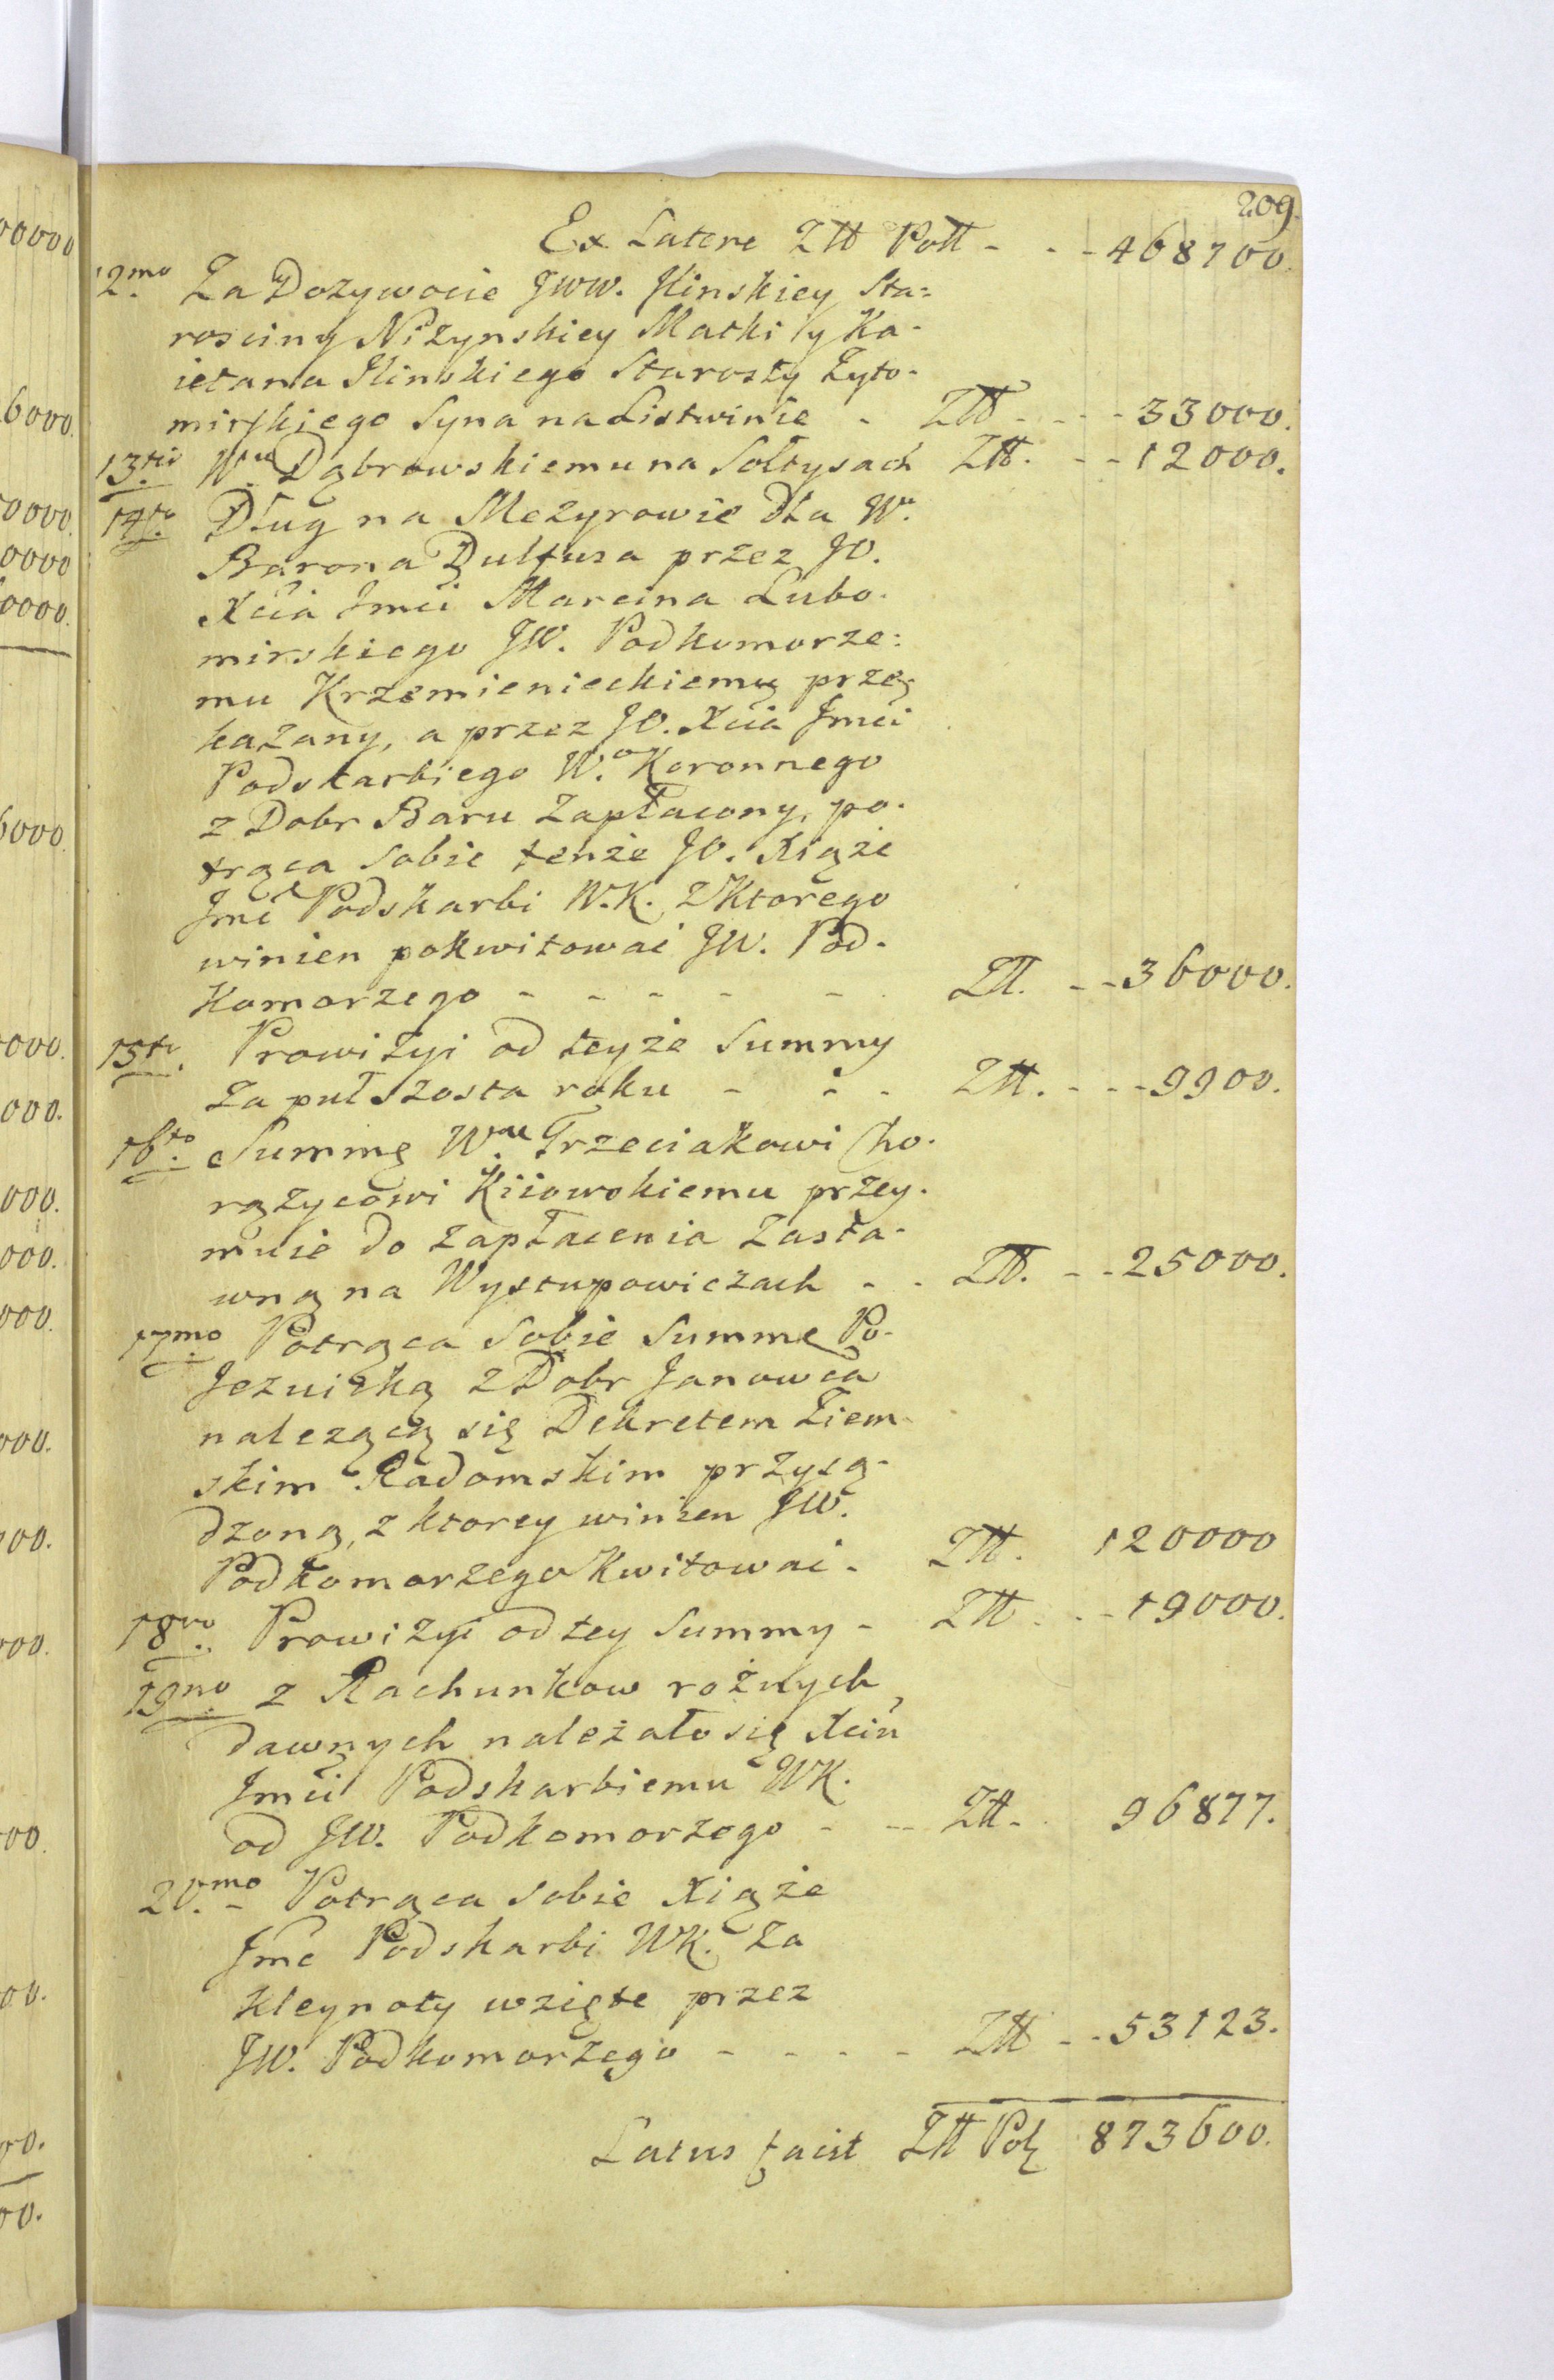 209.
Ex Latere Ztt Poll - - - 468700.
12mo. Za Dozywocie JWW. Ilinskiey Sta=
rosciny Niżynskiey Matki y Ka-
ietana Ilinskiego Starosty Żyto-
mirskiego Syna na Listwinie - Ztt - - - 33000.
13tio. Wmu Dąbrowskiemu na Sołtysach Ztt. - - 12000.
14to. Dług na Mezyrowie dla Wo.
Barona Dulfusa przez JO.
Xcia Jmci Marcina Lubo-
mirskiego JW. Podkomorze=
mu Krzemienieckiemu prze
kazany, a przez JO. Xcia Jmci
Podskarbiego W.o Koronnego
z Dobr Baru Zapłacony, po-
trąca sobie tenże JO. Xiąże
Jmć Podskarbi W.K. z Ktorego
winien pokwitować JW. Pod-
Komorzego - - - - - Ztt. - - 36000.
15to. Prowizyi od teyże Summy
za puł szosta roku - - - Ztt. - - - 9900.
16to. Summę Wmu Trzeciakowi Cho-
rążycowi Kiiowskiemu przey-
muie do zapłacenia Zasta-
wną na Wystupowiczach - - Ztt. - - 25000.
17mo. Potrąca sobie Summę Po-
Jezuicką z Dobr Janowca
nalezącą się Dekretem Ziem-
skim Radomskim przysą-
dzoną, z ktorey winien JW.
Podkomorzego Kwitować - Ztt. 120000
18vo. Prowizyi od tey Summy - Ztt. - - 19000.
19no. z Rachunkow rożnych
dawnych należało się Xciu
Jmci Podskarbiemu WK.
od JW. Podkomorzego - - Ztt. 96877.
20.mo - Potrąca sobie Xiąże
Jmć Podskarbi WK. Za
Kleynoty wzięte przez
JW. Podkomorzego - - - - Ztt - - 53123.
Latus facit Ztt Pol 873600.